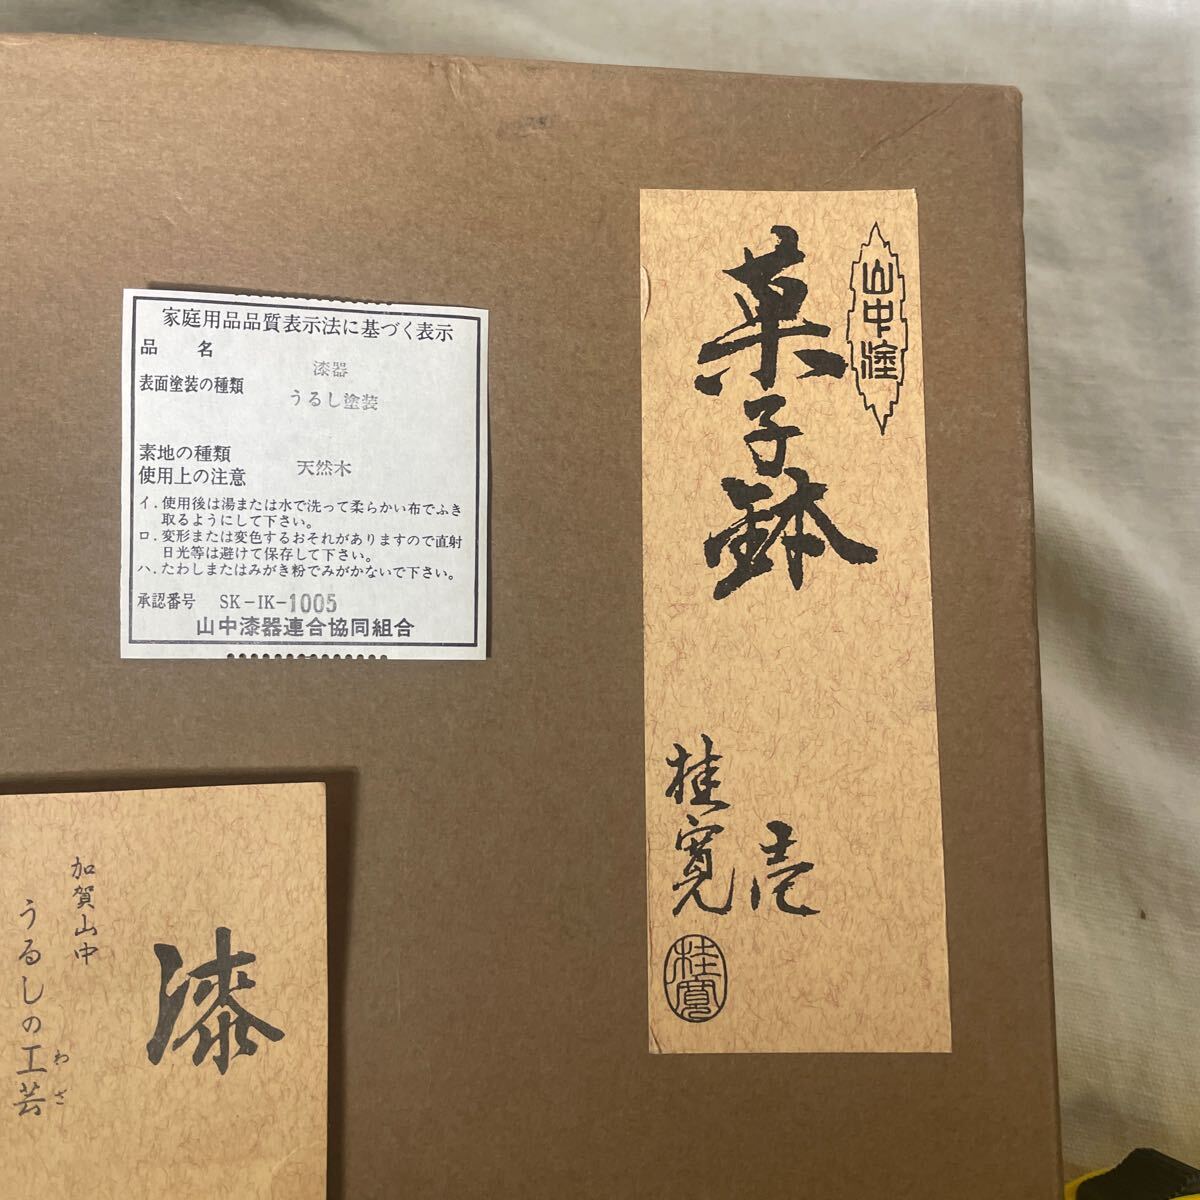 家庭用品品質表示法に基づく表示
品　名
漆器
表面塗装の種類
うるし塗装
素地の種類
天然木
使用上の注意
イ. 使用後は湯または水で洗って柔らかい布でふき
取るようにして下さい。
ロ. 変形または変色するおそれがありますので直射
日光等は避けて保存して下さい。
ハ. たわしまたはみがき粉でみがかないで下さい。
承認番号　SK-IK-1005
山中漆器連合協同組合
山中塗
菓子鉢
壱
桂寛
桂寛
漆
加賀山中
うるしの工芸
わざ